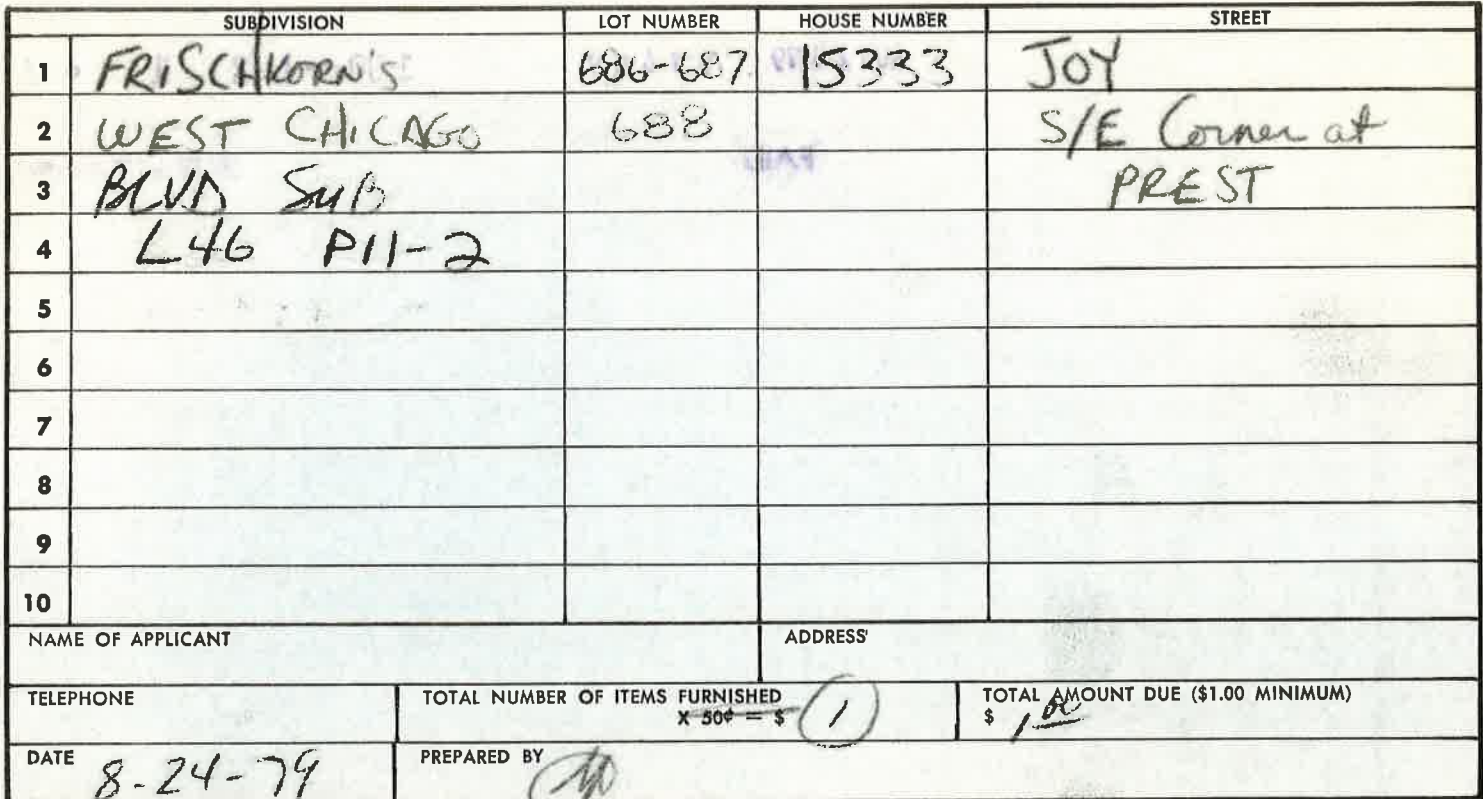 SUBDIVISION LOT NUMBER HOUSE NUMBER STREET
1 FRISCHKORN'S 686-687 15333 JOY
2 WEST CHICAGO 688 S/E Corner at
3 BLVD SUB PREST
4 L46 P11-2
5
6
7
8
9
10
NAME OF APPLICANT ADDRESS
TELEPHONE TOTAL NUMBER OF ITEMS FURNISHED TOTAL AMOUNT DUE ($1.00 MINIMUM)
X 50¢ = $ 1 $ 1.00
DATE 8-24-79 PREPARED BY